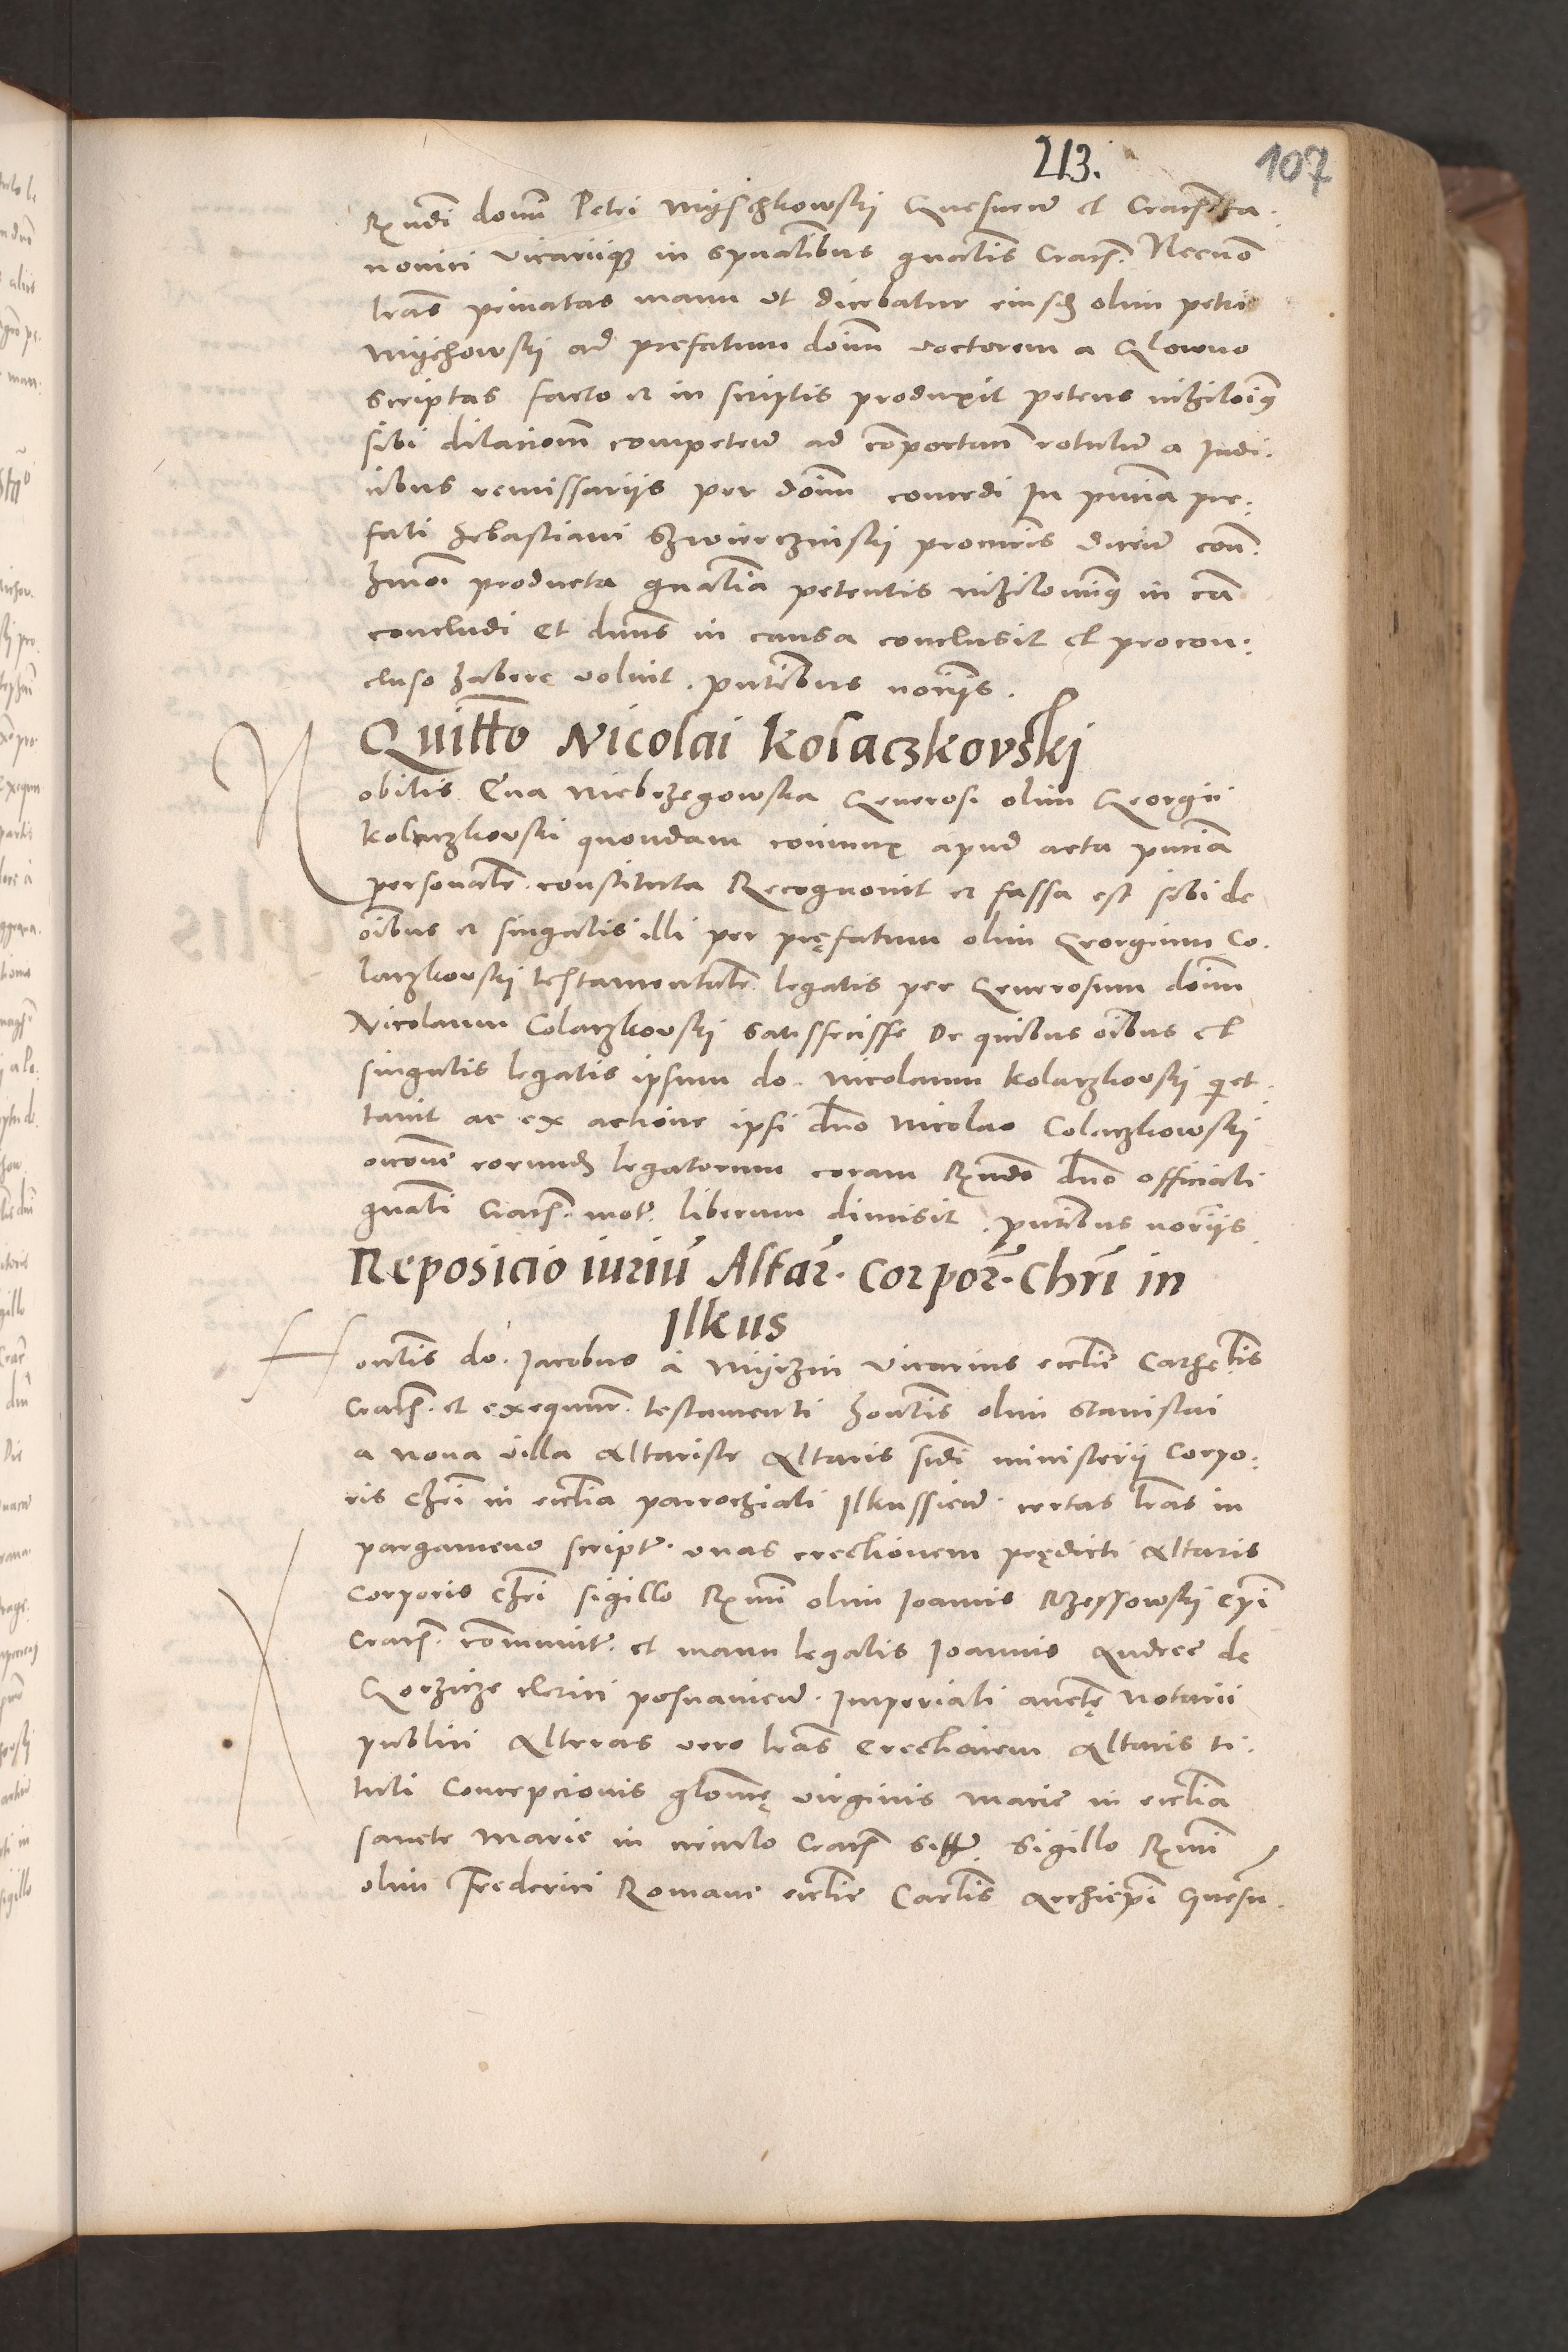 213.
107
Rvndi domini Petri Myschkowski Gnesnen et Cracen ca.
nonici vicariique in spualibus gnalis Cracen. Necnō
lras privatas manu vt dicebatur eiusdem olim petri
Myschowski ad prefatum doīm doctorem a Glowno
scriptas facto et in scriptis produxit petens nihiloīg
sibi dilacionem competen ad comportanm rotulum a Iudi.
cibus remissariis per doīm concedi In pntia pre.
fati Sebastiani Szwierczinski procuris dicen con.
hmōi producta gnalia petentis nihilominus in cā
concludi Et dnus in causa conclusit et procon.
cluso habere voluit. pntibus noriis.
Quittō Nicolai Kolaczkovski
Nobilis Eua Niebrzegowska Generosi olim Georgii
Kolaczkovski quondam coniunx apud acta pntia
personalr. constituta Recognovit et fassa est sibi de
oībus et singulis illi per pręfatum olim Georgium Co.
laczkovski testamentalr legatis per Generosum doīm
Nicolaum Colaczkovski satisfecisse De quibus oībus et
singulis legatis ipsum do. Nicolaum Kolaczkovski quiet.
tavit ac ex actione ipsi dno Nicolao Colaczkowski
occone eorundem legatorum coram Rvndo dno officiali
gnali Cracen. mot. liberum dimisit. pntibus noriis.
Reposicio iuriū Altar. Corpor. Chri in
Ilkus
Honlis do. Iacobus à Myrzin vicarius ecclie Cathelis
Cracen. et exequutr. testamenti honlis olim Stanislai
a nova villa Altariste Altaris sive ministerii Corpo.
ris Chri in ecclia parrochiali Ilkussien. certas lras in
pargameno script. vnas erectionem prędicti Altaris
Corporis Chri sigillo Rvmi olim Ioannis Rzessowski epi
Cracen. communit. et manu legalis Ioannis Andree de
Gorzicze clerici posnanien. Imperiali auctę Notarii
publici Alteras vero lras Erectionem Altaris ti.
tuli Concepcionis glosę virginis Marie in ecclia
sancte Marie in circulo Cracen sitt. Sigillo Rvmi
olim Frederici Romane ecclie Carlis Archiepi Gnesn.